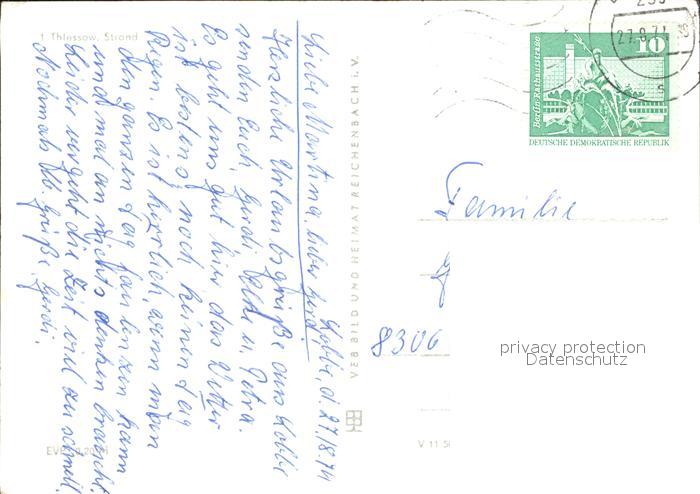 1 Thiessow, Strand
Lobbe, d. 27.8.74
Liebe Martina, lieber Gerd!
Herzliche Urlaubsgrüße aus Lobbe
senden Euch, Gerdi, u. Petra.
Es geht uns gut hier, das Wetter
ist bestens, noch keinen Tag
Regen. Es ist herrlich, wenn man
den ganzen Tag faulenzen kann
und mal an nichts denken braucht.
Leider vergeht die Zeit viel zu schnell.
Nochmals lb. Grüße, Gerdi.
EVP
VEB BILD UND HEIMAT REICHENBACH i. V.
V 11 50
27.8.74
10
Berlin, Rathausstraße
DEUTSCHE DEMOKRATISCHE REPUBLIK
Familie
8306
privacy protection
Datenschutz